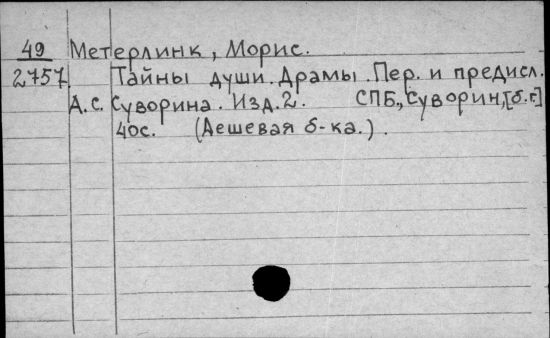 49 Метерлинк, Морис.
2757 Тайны души. Драмы. Пер. и предисл.
А.С. Суворина. Изд. 2. СПБ., Суворин, [б.г.]
40с. (Дешевая б-ка.).